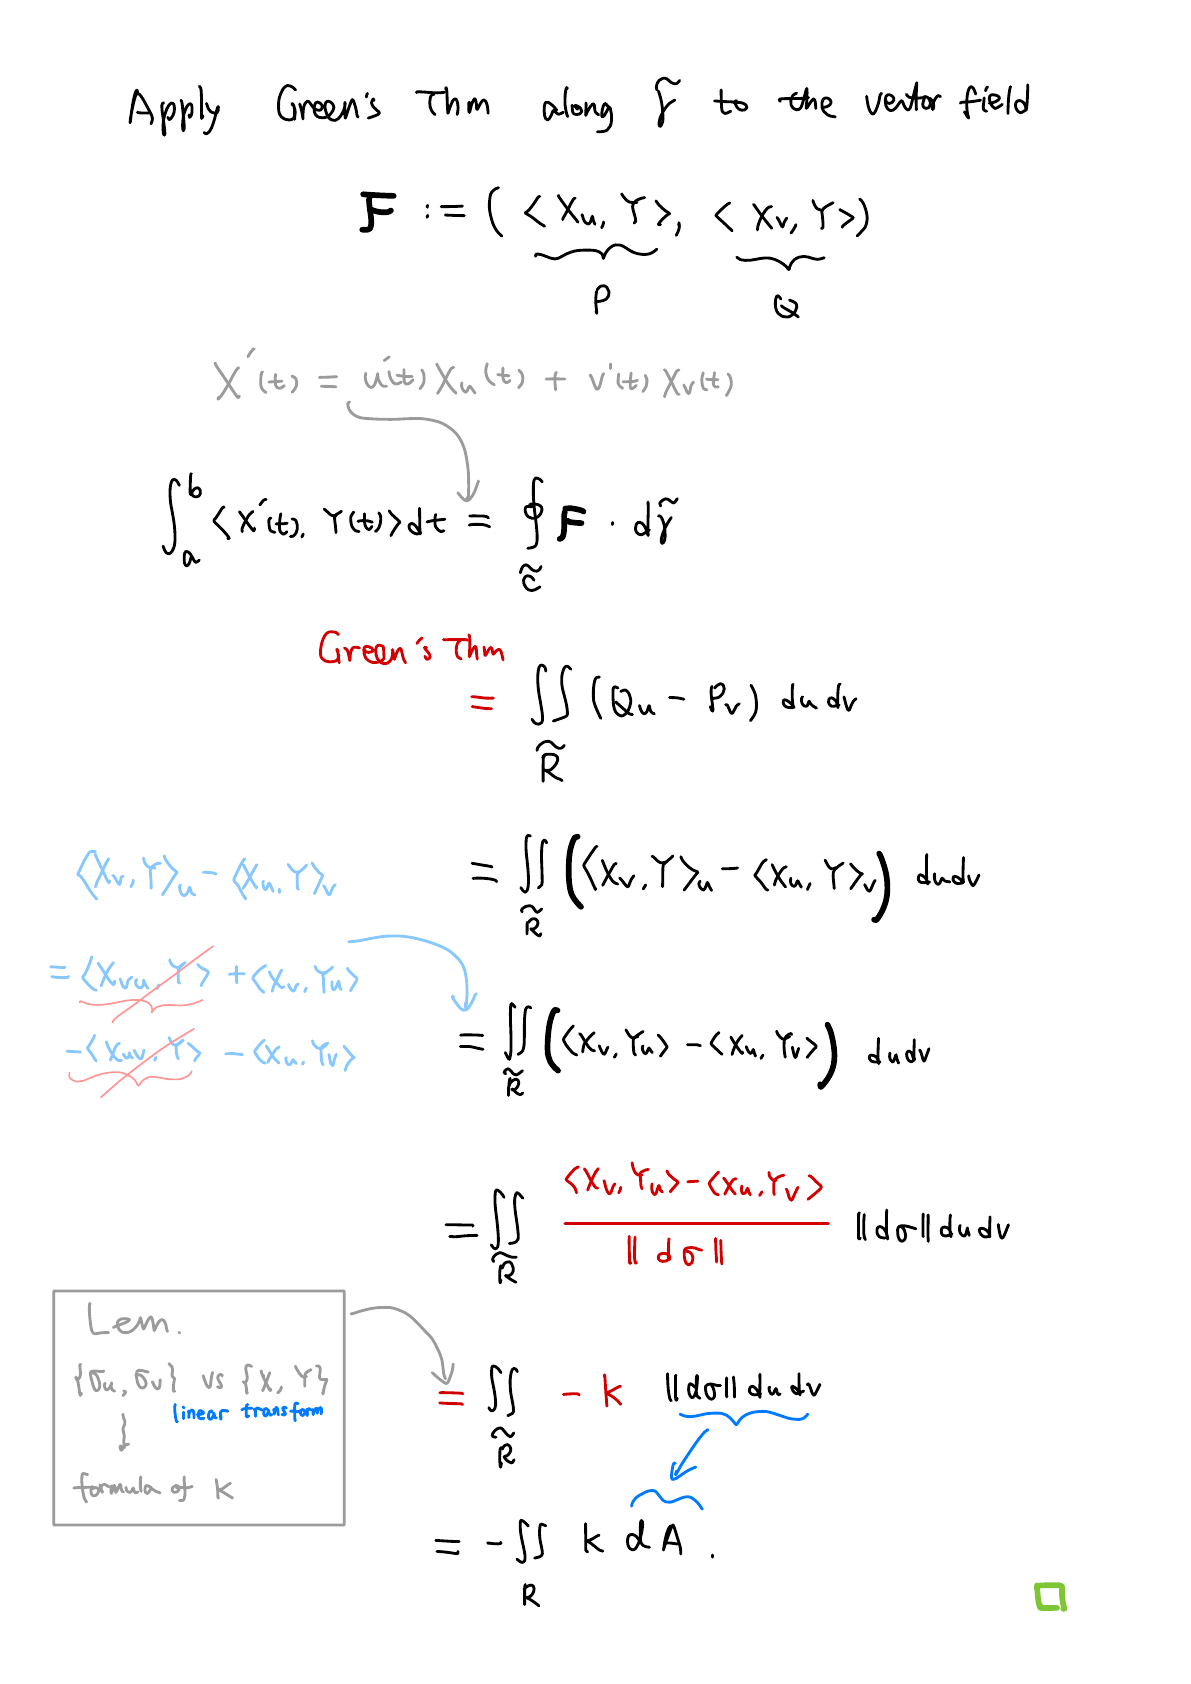 Apply Green's Thm along γ̃ to the vector field
F := ( <Xu, Y>, < Xv, Y>)
P Q
X'(t) = u'(t) Xu(t) + v'(t) Xv(t)
∫_a^b <X'(t), Y(t)>dt = ∮_C̃ F · dγ̃
Green's Thm
= ∬_R̃ (Qu - Pv) du dv
<Xv, Y>u - <Xu, Y>v
= ∬_R̃ (<Xv, Y>u - <Xu, Y>v) dudv
= <Xvu, Y> + <Xv, Yu>
- <Xuv, Y> - <Xu, Yv>
= ∬_R̃ (<Xv, Yu> - <Xu, Yv>) dudv
<Xv, Yu> - <Xu, Yv>
= ∬_R̃ ‖dσ‖ du dv
‖ dσ ‖
Lem.
{σu, σv} vs {X, Y}
linear transform
formula of K
= ∬_R̃ - K ‖dσ‖ du dv
= - ∬_R K dA .